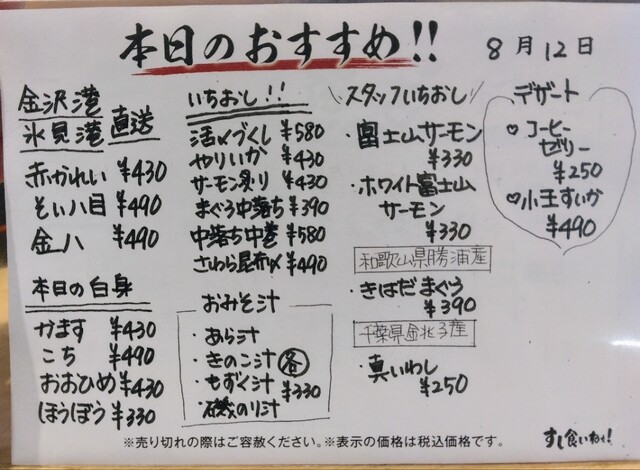 本日のおすすめ!!
8月12日
金沢港
氷見港 直送
赤かれい ¥430
そい八目 ¥490
金八 ¥490
本日の白身
かます ¥430
こち ¥490
おおひめ ¥430
ほうぼう ¥330
いちおし!!
活〆づくし ¥580
やりいか ¥430
サーモン炙り ¥430
まぐろ中落ち ¥390
中落ち中巻 ¥580
さわら昆布〆 ¥490
おみそ汁
・あら汁
・きのこ汁 各
・もずく汁 ¥330
・磯のり汁
\スタッフいちおし/
・富士山サーモン
¥330
・ホワイト富士山
サーモン
¥330
和歌山県勝浦産
・きはだまぐろ
¥390
千葉県銚子産
・真いわし
¥250
デザート
♡コーヒー
ゼリー
¥250
♡小玉すいか
¥490
※売り切れの際はご容赦ください。※表示の価格は税込価格です。
すし食いねぇ!